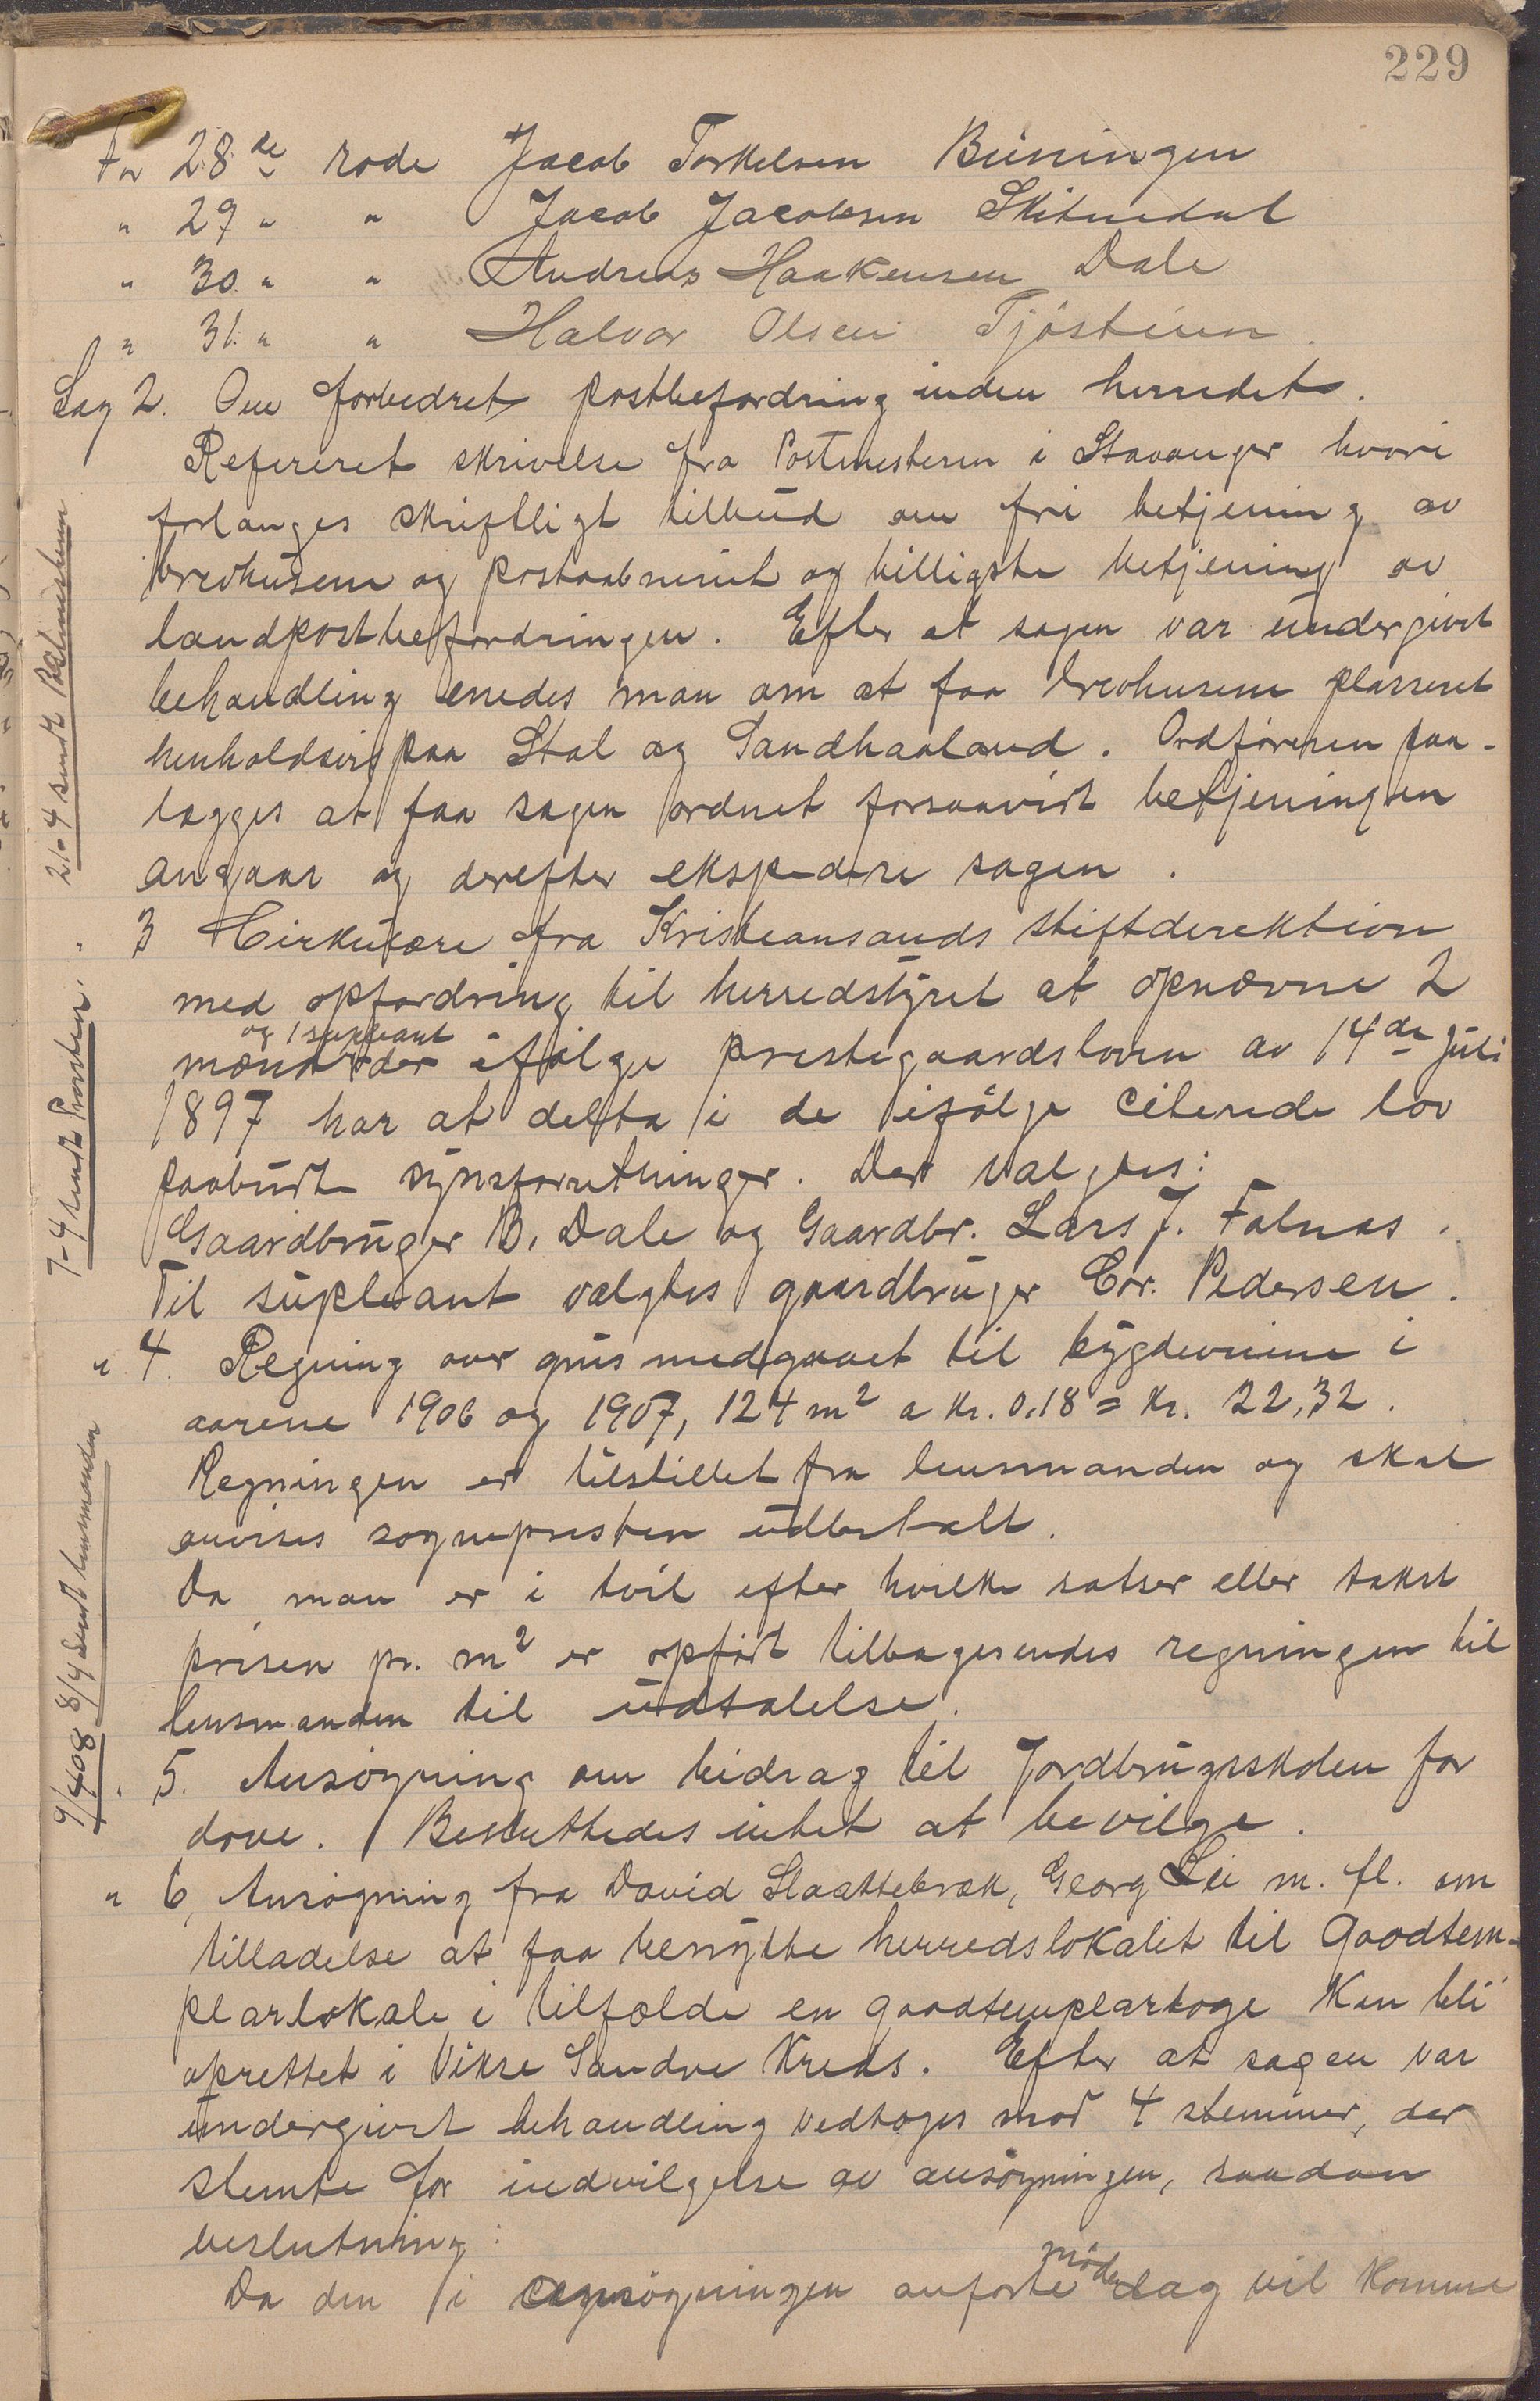 229
For 28de rode Jacob Torkelsen Buningen
" 29 " " Jacob Jacobsen Skitnedal
" 30. " " Andreas Haakensen Dale
" 31. " " Halvor Olsen Tjøsteim.
Sag 2. Om forbedret postbefordring inden herredet.
Refereret skrivelse fra Postmesteren i Stavanger hvori
forlanges skriftligt tilbud om fri betjening av
brevhusene og postaabneriet og billigste betjening av
landpostbefordringen. Efter at sagen var undergivet
behandling enedes man om at faa brevhusene plasseret
henholdsvis paa Stol og Sandhaaland. Ordføreren paa-
lægges at faa sagen ordnet forsaavidt betjeningen
angaar og derefter ekspedere sagen.
" 3 Cirkulære fra Kristiansands stiftdirektion
med opfordring til herredstyret at opnævne 2
og 1 supleant
mænd der ifølge prestegaardsloven av 14de Juli
1897 har at delta i de ifølge citerede lov
paabudte synsforretninger. Der valgtes:
Gaardbruger B. Dale og Gaardbr. Lars J. Falnas.
Til supleant valgtes gaardbruger Cor. Pedersen.
" 4. Regning over grus medgaaet til bygdeveiene i
aarene 1906 og 1907, 124 m² a kr. 0,18 = kr. 22,32.
Regningen er tilstillet fra lensmanden og skal
anvises sognepresten udbetalt.
Da man er i tvil efter hvilke satser eller takst
prisen pr. m² er opført tilbagesendes regningen til
lensmanden til udtalelse.
" 5. Ansøgning om bidrag til Jordbrugsskolen for
døve. Besluttedes intet at bevilge.
" 6, Ansøgning fra David Slaattebræk, Georg Lie m. fl. om
tilladelse at faa benytte herredslokalet til Goodtem-
plarlokale i tilfælde en goodtemplarloge kan bli
oprettet i Vikse Sandve Kreds. Efter at sagen var
undergivet behandling vedtoges mod 4 stemmer, der
stemte for indvilgelse av ansøgningen, saadan
beslutning:
møde
Da den i ansøgningen anførte dag vil komme
21-4 sendt Postmesteren
7-4 sendt Provsten.
8/4 sendt lensmanden
9/4 08